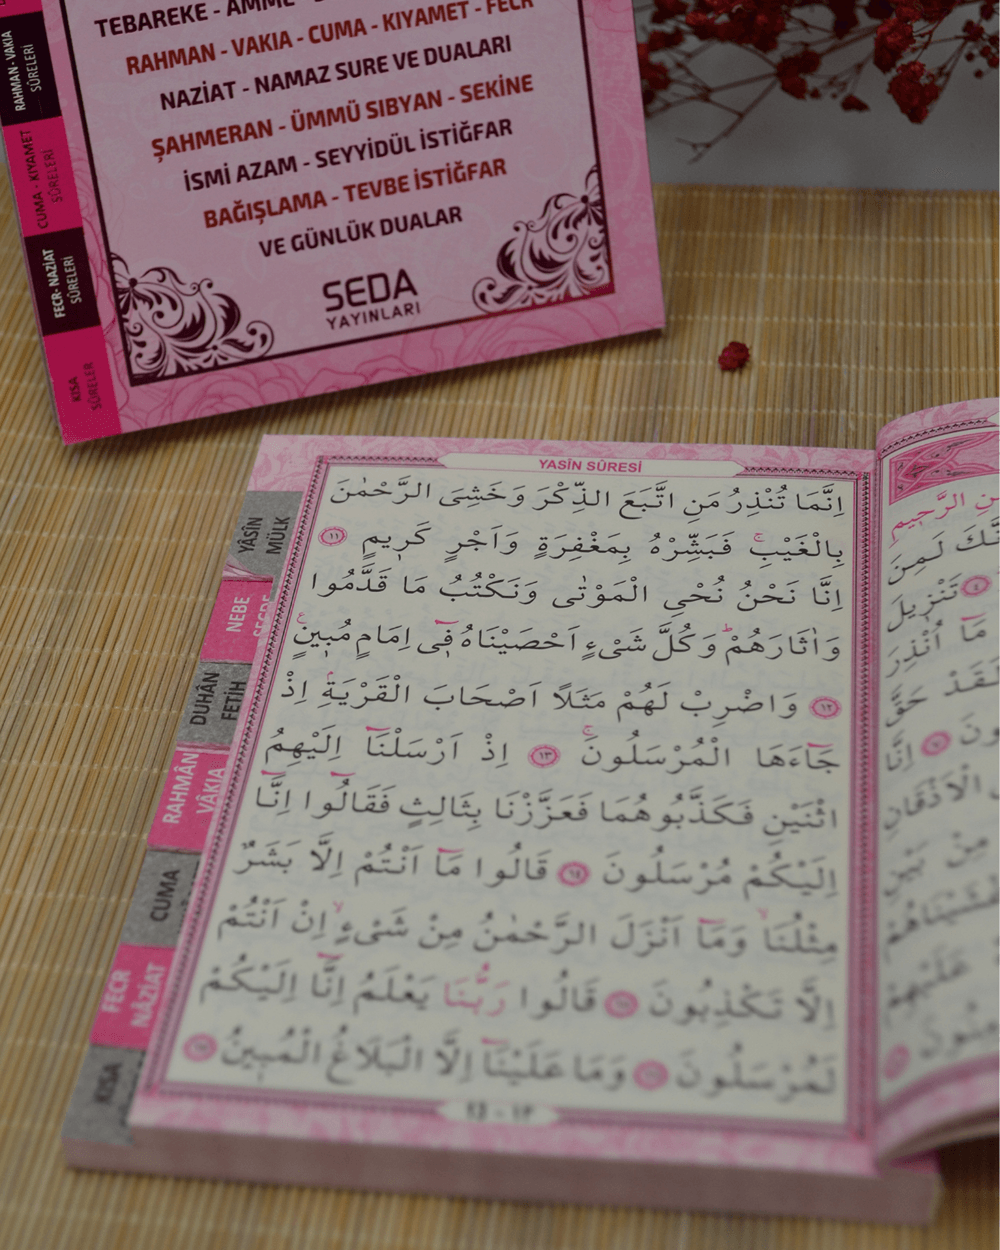 TEBAREKE - AMME -
RAHMAN - VAKIA - CUMA - KIYAMET - FECR
NAZİAT - NAMAZ SURE VE DUALARI
ŞAHMERAN - ÜMMÜ SIBYAN - SEKİNE
İSMİ AZAM - SEYYİDÜL İSTİĞFAR
BAĞIŞLAMA - TEVBE İSTİĞFAR
VE GÜNLÜK DUALAR
SEDA
YAYINLARI
RAHMAN - VAKIA
SÛRELERİ
CUMA - KIYAMET
SÛRELERİ
FECR- NAZİAT
SÛRELERİ
KISA
SÛRELER
YASİN SÛRESİ
اِنَّمَا تُنْذِرُ مَنِ اتَّبَعَ الذِّكْرَ وَخَشِىَ الرَّحْمٰنَ
بِالْغَيْبِۚ فَبَشِّرْهُ بِمَغْفِرَةٍ وَاَجْرٍ كَرٖيمٍ ﴿١١﴾
اِنَّا نَحْنُ نُحْيِ الْمَوْتٰى وَنَكْتُبُ مَا قَدَّمُوا
وَاٰثَارَهُمْۜ وَكُلَّ شَىْءٍ اَحْصَيْنَاهُ فٖٓى اِمَامٍ مُبٖينٍۚ
﴿١٢﴾ وَاضْرِبْ لَهُمْ مَثَلًا اَصْحَابَ الْقَرْيَةِۢ اِذْ
جَٓاءَهَا الْمُرْسَلُونَۚ ﴿١٣﴾ اِذْ اَرْسَلْنَٓا اِلَيْهِمُ
اثْنَيْنِ فَكَذَّبُوهُمَا فَعَزَّزْنَا بِثَالِثٍ فَقَالُٓوا اِنَّٓا
اِلَيْكُمْ مُرْسَلُونَ ﴿١٤﴾ قَالُوا مَٓا اَنْتُمْ اِلَّا بَشَرٌ
مِثْلُنَاۙ وَمَٓا اَنْزَلَ الرَّحْمٰنُ مِنْ شَىْءٍۙ اِنْ اَنْتُمْ
اِلَّا تَكْذِبُونَ ﴿١٥﴾ قَالُوا رَبُّنَا يَعْلَمُ اِنَّٓا اِلَيْكُمْ
لَمُرْسَلُونَ ﴿١٦﴾ وَمَا عَلَيْنَٓا اِلَّا الْبَلَاغُ الْمُبٖينُ ﴿١٧﴾
13 - ١٣
YÂSÎN
MÜLK
NEBE
SECDE
DUHÂN
FETİH
RAHMÂN
VÂKIA
CUMA
FECR
NÂZİAT
KISA
الرَّحٖيمِ
لَمِنَ
تَنْزٖيلَ
مَٓا اُنْذِرَ
لَقَدْ حَقَّ
اِنَّا
الْاَذْقَانِ
مِنْ بَيْنِ
عَلَيْهِمْ